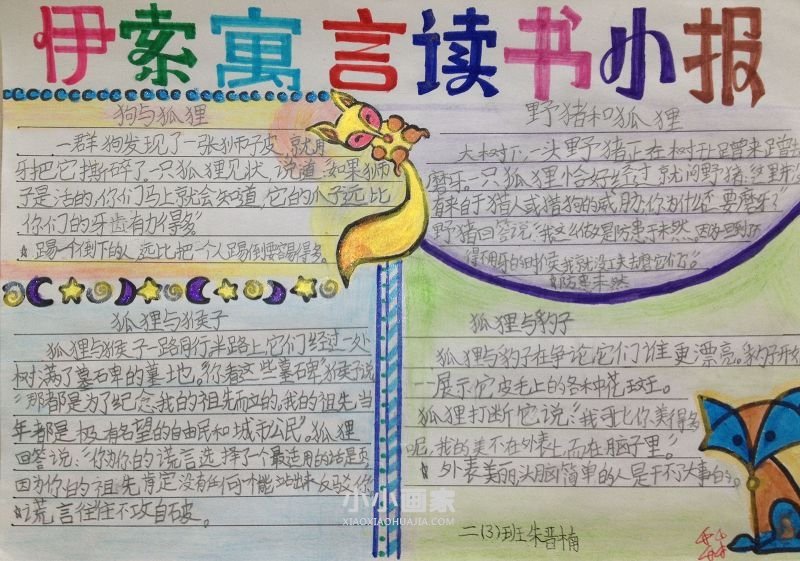 伊索寓言读书小报
狗与狐狸
一群狗发现了一张狮子皮,就用
牙把它撕碎了。一只狐狸见状,说道:“如果狮
子是活的,你们马上就会知道,它的爪子远比
你们的牙齿有力得多”
踢一个倒下的人,远比把一个人踢倒要容易得多。
野猪和狐狸
大树下,一头野猪正在树干上蹭来蹭去
磨牙。一只狐狸恰好经过,就问野猪:“这里
有来自于猎人或猎狗的威胁,你为什么还要磨牙?”
野猪回答说:“我这么做是防患于未然,因为到
得用牙的时候,我就没工夫去磨它们了。”
防患未然
狐狸与猴子
狐狸与猴子一路同行,半路上,它们经过一处
树满了墓石碑的墓地。“你看这些墓石碑”猴子说
“那都是为了纪念我的祖先而立的。我的祖先,当
年都是极有名望的自由民和城市公民”。狐狸
回答说:“你为你的谎言选择了一个最适用的话是
因为你的祖先肯定没有任何才能站出来反驳你
谎言往往不攻自破。
狐狸与豹子
狐狸与豹子在争论,它们谁更漂亮。豹子开始
一一展示它皮毛上的各种花纹。
狐狸打断它说:“我可比你美得多
呢,我的美不在外表上,而在脑子里。”
外表美丽头脑简单的人是干不了大事的。
二(3)班 朱晋楠
小小画家
XIAOXIAOHUAJIA.COM